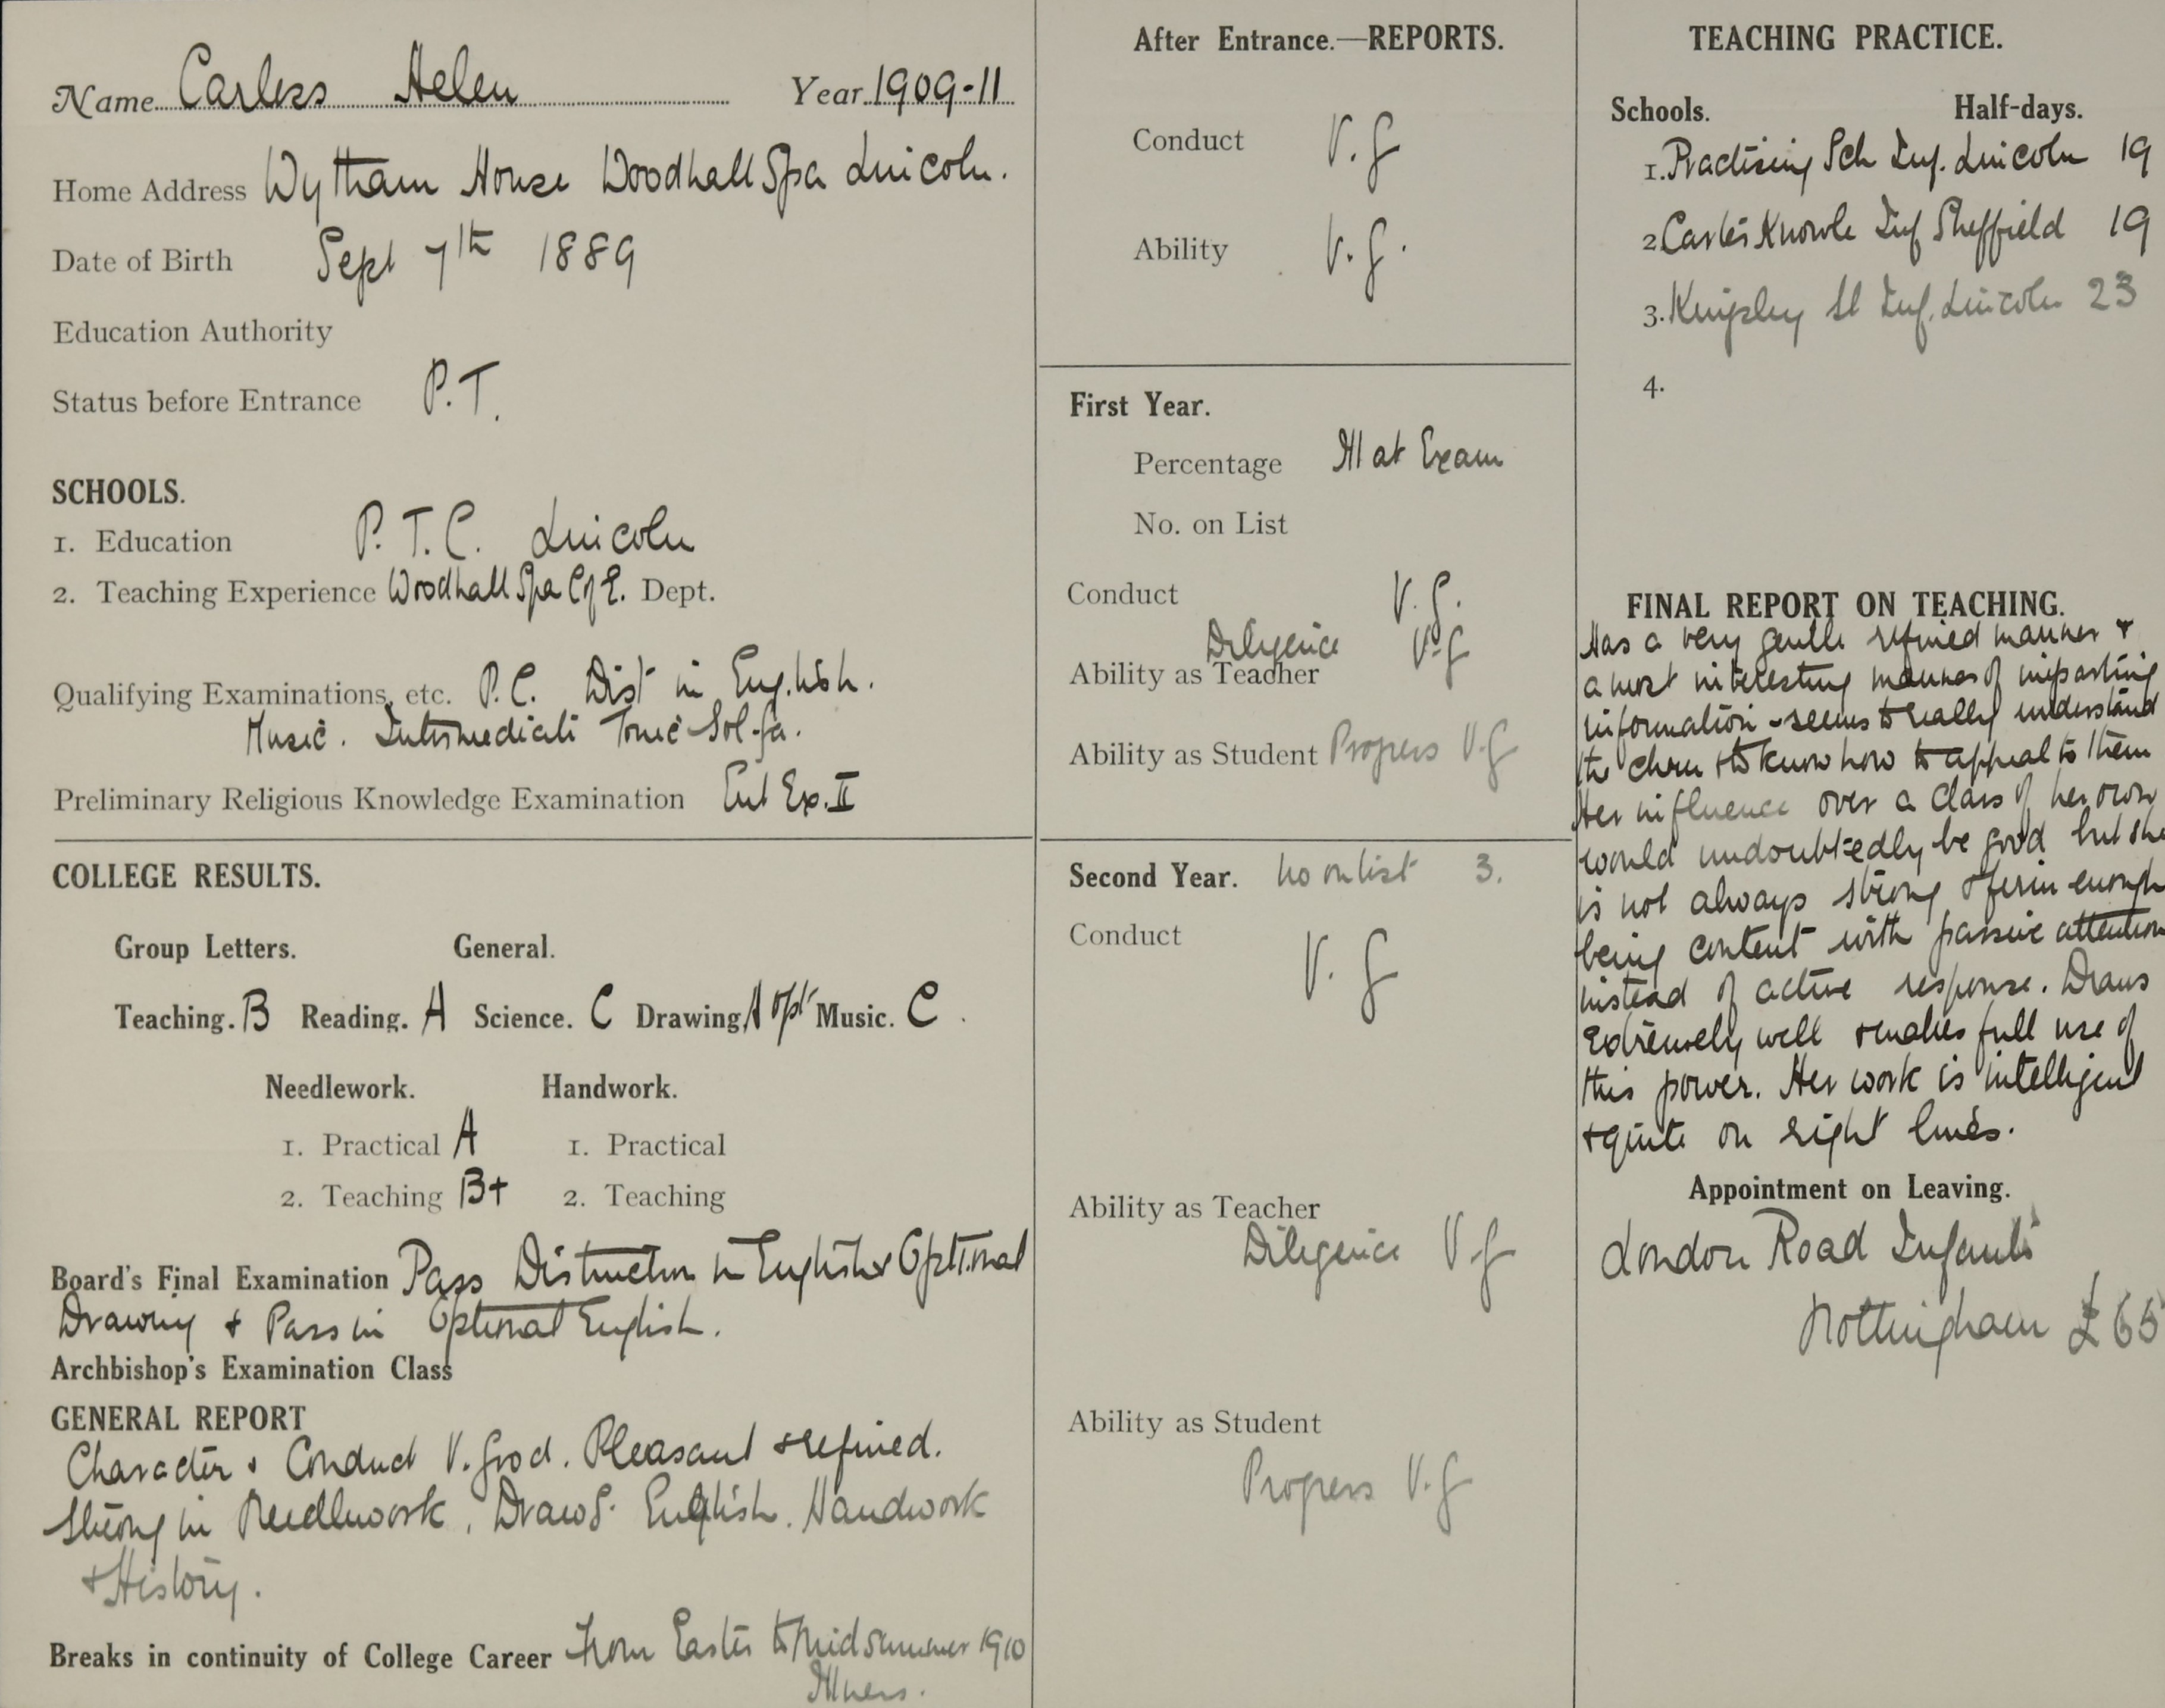 Name Carless Helen Year 1909-11
Home Address Wytham House Woodhall Spa Lincoln.
Date of Birth Sept 7th 1889
Education Authority
Status before Entrance P.T.
SCHOOLS.
1. Education P. T. C. Lincoln
2. Teaching Experience Woodhall Spa C of E. Dept.
Qualifying Examinations, etc. P.C. Dist in English.
Music. Intermediate Tonic Sol-fa.
Preliminary Religious Knowledge Examination Ent Ex. II
COLLEGE RESULTS.
Group Letters. General.
Teaching. B Reading. A Science. C Drawing. A opt Music. C.
Needlework. Handwork.
1. Practical A 1. Practical
2. Teaching B+ 2. Teaching
Board's Final Examination Pass Distinction in English & Optional
Drawing & Pass in Optional English.
Archbishop's Examination Class
GENERAL REPORT
Character & Conduct V. Good. Pleasant & refined.
Strong in Needlework, Drawg. English. Handwork
& History.
Breaks in continuity of College Career From Easter to Midsummer 1910
Illness.
After Entrance.—REPORTS.
Conduct V. g
Ability V. g.
First Year.
Percentage Ill at Exam
No. on List
Conduct V. g.
Diligence V. g
Ability as Teacher
Ability as Student Progress V. g
Second Year. No on list 3.
Conduct V. g
Ability as Teacher
Diligence V. g
Ability as Student
Progress V. g
TEACHING PRACTICE.
Schools. Half-days.
1. Practising Sch Inf. Lincoln 19
2. Carter Knowle Inf Sheffield 19
3. Kingsley St Inf. Lincoln 23
4.
FINAL REPORT ON TEACHING.
Has a very gentle refined manner &
a most interesting manner of imparting
information - seems to really understand
the chrn & to know how to appeal to them
Her influence over a class of her own
would undoubtedly be good but she
is not always strong & firm enough
being content with passive attention
instead of active response. Draws
extremely well & makes full use of
this power. Her work is intelligent
& quite on right lines.
Appointment on Leaving.
London Road Infants
Nottingham £65